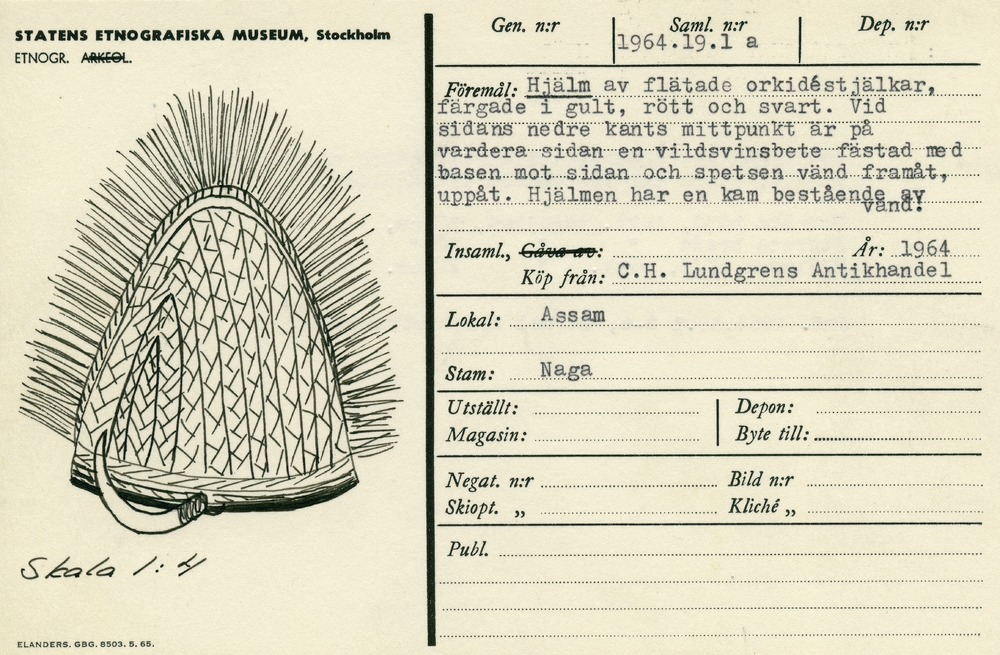 STATENS ETNOGRAFISKA MUSEUM, Stockholm
ETNOGR. ARKEOL.
Skala 1:4
ELANDERS. GBG. 8503. 5. 65.
Gen. n:r Saml. n:r Dep. n:r
1964.19.1 a
Föremål: Hjälm av flätade orkidéstjälkar,
färgade i gult, rött och svart. Vid
sidans nedre kants mittpunkt är på
vardera sidan en vildsvinsbete fästad med
basen mot sidan och spetsen vänd framåt,
uppåt. Hjälmen har en kam bestående av
vänd!
Insaml., Gåva av: År: 1964
Köp från: C.H. Lundgrens Antikhandel
Lokal: Assam
Stam: Naga
Utställt: Depon:
Magasin: Byte till:
Negat. n:r Bild n:r
Skiopt. „ Kliché „
Publ.